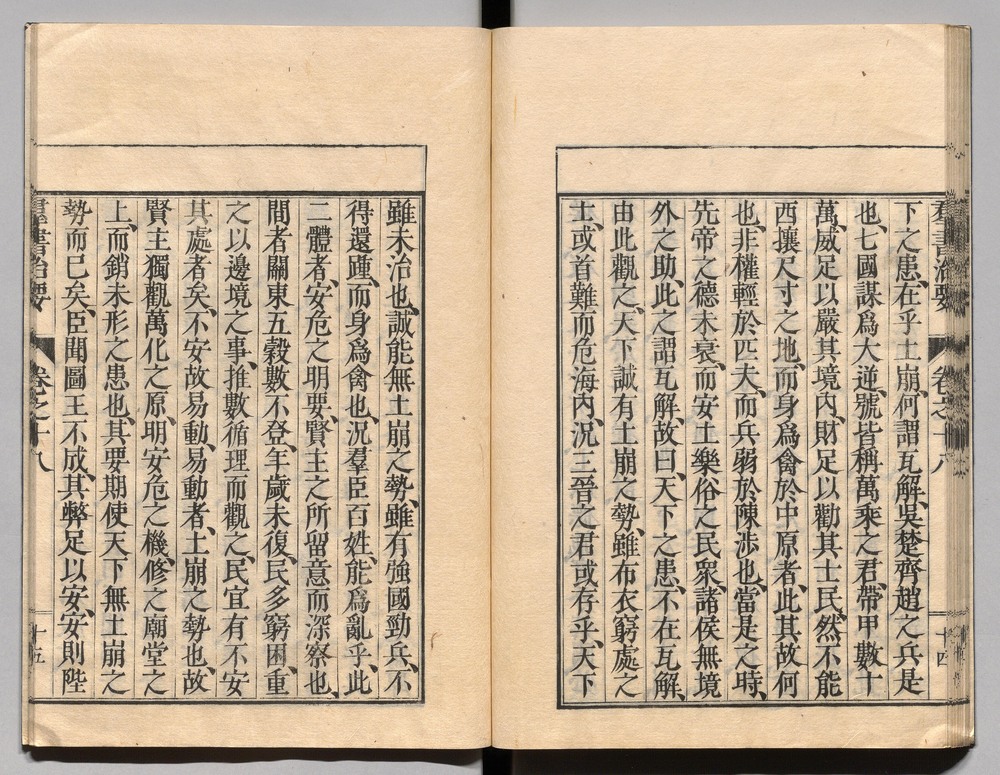 羣書治要 卷之十八 十四
下之患、在乎土崩、何謂瓦解、吳楚齊趙之兵是
也、七國謀爲大逆、號皆稱萬乘之君、帶甲數十
萬、威足以嚴其境內、財足以勸其士民、然不能
西攘尺寸之地、而身爲禽於中原者、此其故何
也、非權輕於匹夫、而兵弱於陳涉也、當是之時、
先帝之德未衰、而安土樂俗之民衆、諸侯無境
外之助、此之謂瓦解、故曰、天下之患、不在瓦解、
由此觀之、天下誠有土崩之勢、雖布衣窮處之
士、或首難而危海內、況三晉之君或存乎、天下
雖未治也、誠能無土崩之勢、雖有強國勁兵、不
得還踵、而身爲禽也、況羣臣百姓、能爲亂乎、此
二體者、安危之明要、賢主之所留意而深察也、
間者關東五穀數不登、年歲未復、民多窮困、重
之以邊境之事、推數循理而觀之、民宜有不安
其處者矣、不安故易動、易動者、土崩之勢也、故
賢主獨觀萬化之原、明安危之機、修之廟堂之
上、而銷未形之患也、其要期使天下無土崩之
勢而已矣、臣聞圖王不成、其弊足以安、安則陛
羣書治要 卷之十八 十五